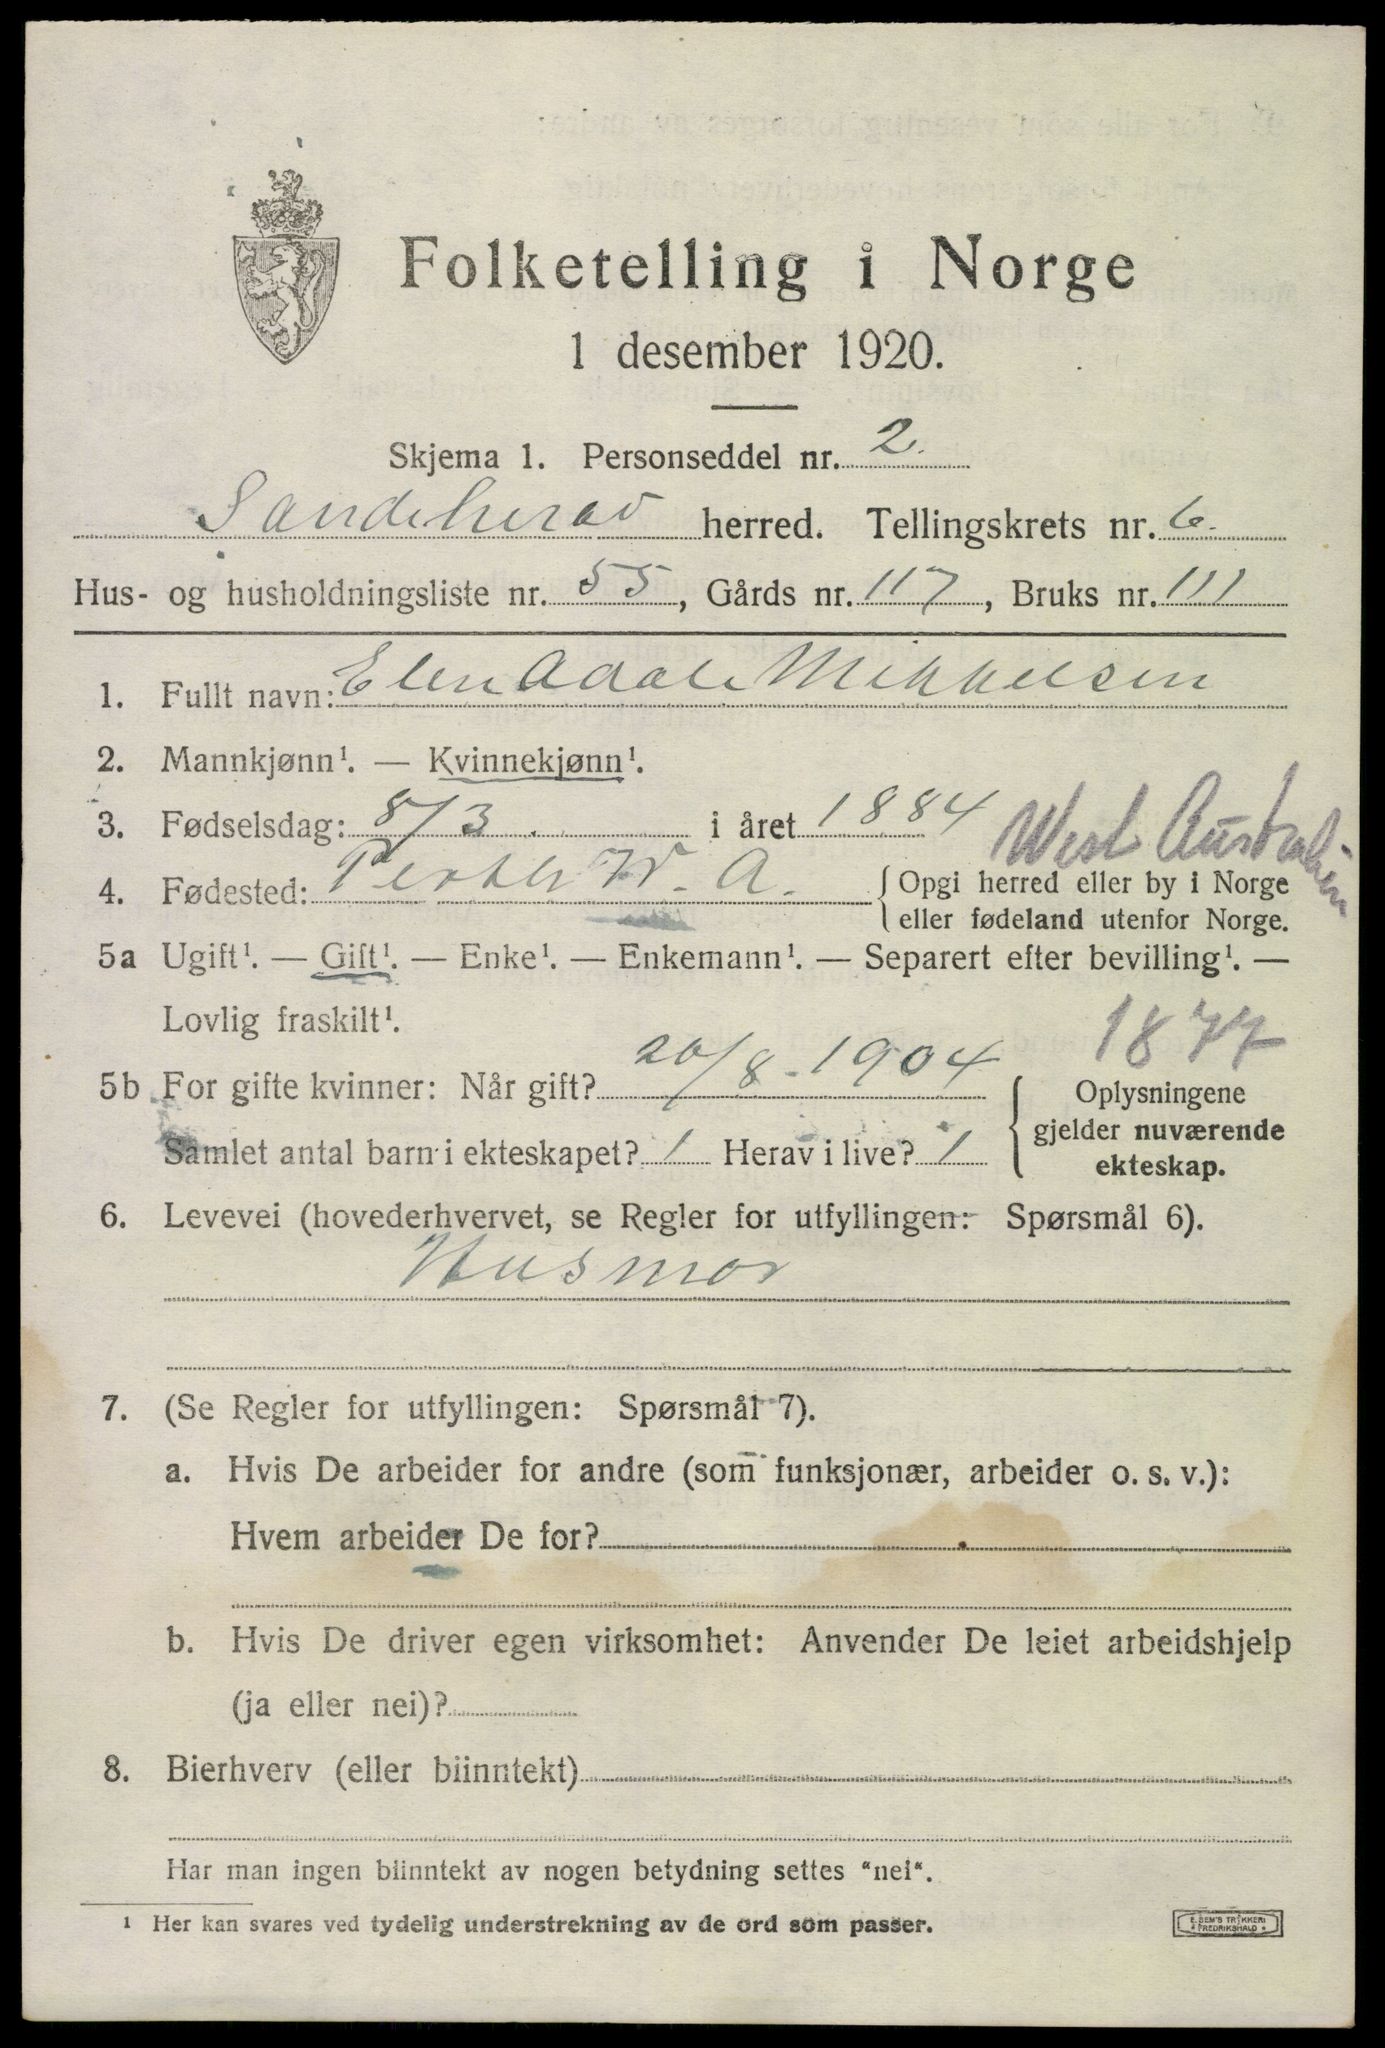 Folketelling i Norge
1 desember 1920.
Skjema 1. Personseddel nr. 2.
Sandeherad herred. Tellingskrets nr. 6.
Hus- og husholdningsliste nr. 55, Gårds nr. 117, Bruks nr. 111
1. Fullt navn: Elen Adale Mikkelsen
2. Mannkjønn¹. — Kvinnekjønn¹.
3. Fødselsdag: 8/3. i året 1884
West Australien
4. Fødested: Perth W. A. { Opgi herred eller by i Norge
eller fødeland utenfor Norge.
5a Ugift¹. — Gift¹. — Enke¹. — Enkemann¹. — Separert efter bevilling¹. —
Lovlig fraskilt¹.
1877
5b For gifte kvinner: Når gift? 20/8-1904 { Oplysningene
gjelder nuværende
ekteskap.
Samlet antal barn i ekteskapet? 1 Herav i live? 1
6. Levevei (hovederhvervet, se Regler for utfyllingen: Spørsmål 6).
Husmor
7. (Se Regler for utfyllingen: Spørsmål 7).
a. Hvis De arbeider for andre (som funksjonær, arbeider o. s. v.):
Hvem arbeider De for?
b. Hvis De driver egen virksomhet: Anvender De leiet arbeidshjelp
(ja eller nei)?
8. Bierhverv (eller biinntekt)
Har man ingen biinntekt av nogen betydning settes "nei".
¹ Her kan svares ved tydelig understrekning av de ord som passer.
E. SEM'S TRYKKERI
FREDRIKSHALD